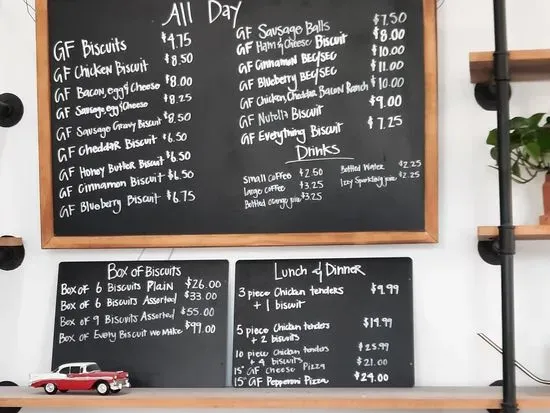 All Day
GF Biscuits $4.75
GF Chicken Biscuit $8.50
GF Bacon, egg & Cheese $8.00
GF Sausage, egg & Cheese $8.25
GF Sausage Gravy Biscuit $8.50
GF Cheddar Biscuit $6.50
GF Honey Butter Biscuit $6.50
GF Cinnamon Biscuit $6.50
GF Blueberry Biscuit $6.75
GF Sausage Balls $7.50
GF Ham & Cheese Biscuit $8.00
GF Cinnamon BEC/SEC $10.00
GF Blueberry BEC/SEC $11.00
GF Chicken, Cheddar Bacon Ranch $10.00
GF Nutella Biscuit $9.00
GF Everything Biscuit $7.25
Drinks
Small coffee $2.50
large coffee $3.25
Bottled orange juice $3.25
Bottled Water $2.25
Izzy Sparkling juice $2.25
Box of Biscuits
Box of 6 Biscuits Plain $26.00
Box of 6 Biscuits Assorted $33.00
Box of 9 Biscuits Assorted $55.00
Box of Every Biscuit we Make $99.00
Lunch & Dinner
3 piece Chicken tenders $9.99
+ 1 biscuit
5 piece Chicken tenders $14.99
+ 2 biscuits
10 piece Chicken tenders $25.99
+ 4 biscuits
15" GF Cheese Pizza $21.00
15" GF Pepperoni Pizza $24.00